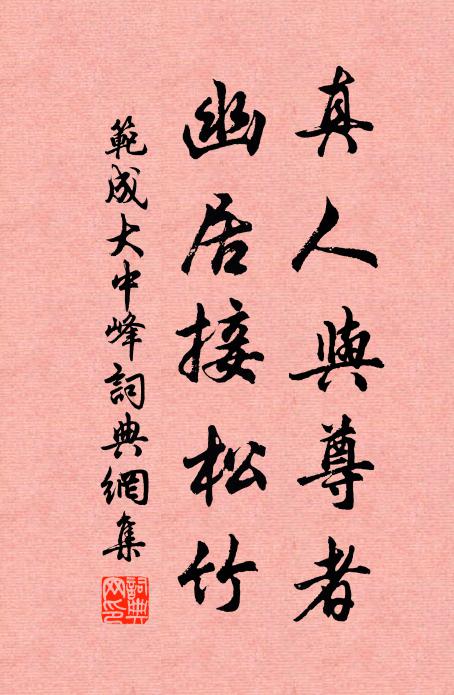 真人與尊者
幽居接松竹
範成大中峰詞典網集
詞典網印